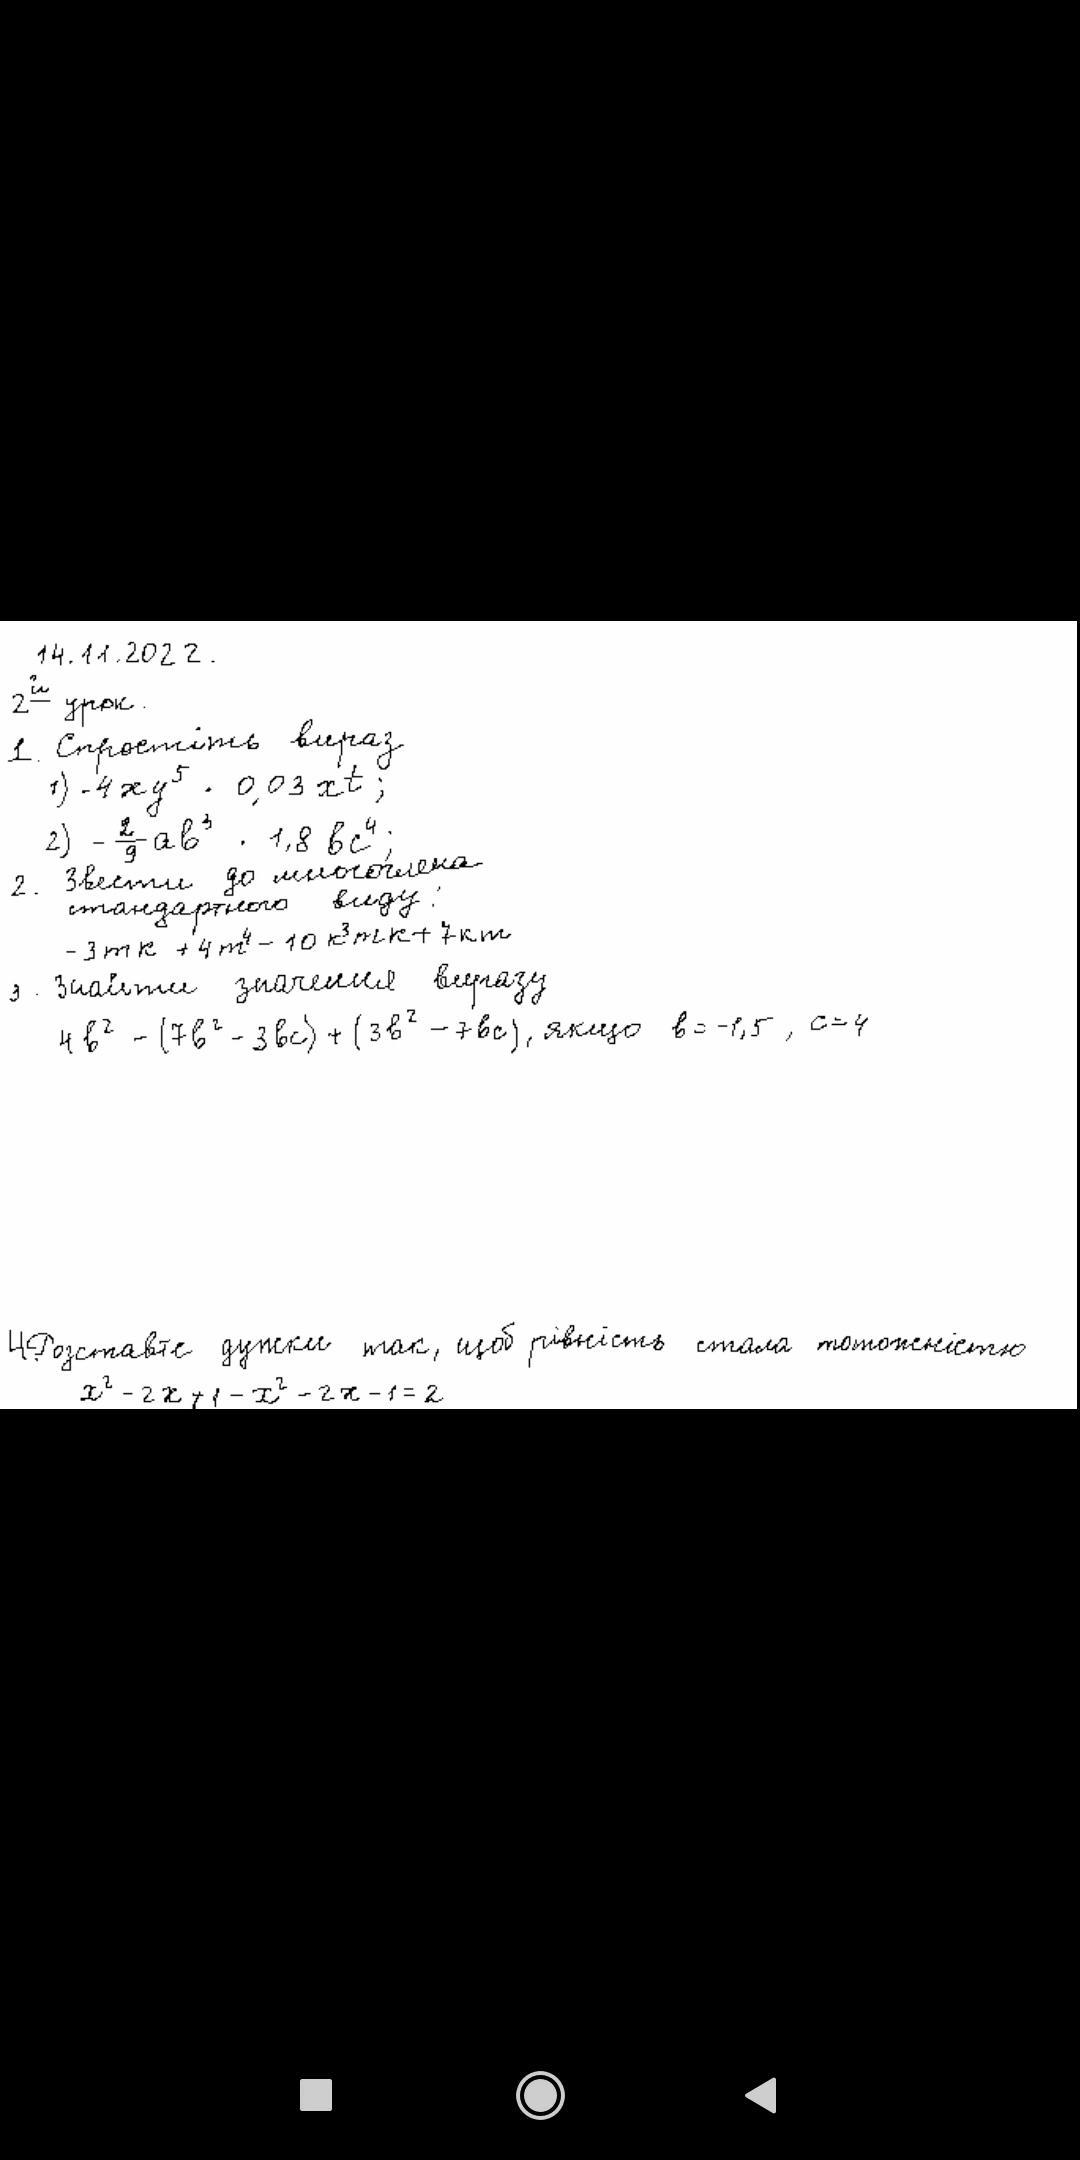 14.11.2022.
2й урок.
1. Спростіть вираз
1) -4xy⁵ · 0,03xt;
2) -2/9 ab³ · 1,8 bc⁴;
2. Звести до многочлена
стандартного виду:
-3mk + 4m⁴ - 10k³mk + 7km
3. Знайти значення виразу
4b² - (7b² - 3bc) + (3b² - 7bc), якщо b = -1,5, c = 4
4. Розставте дужки так, щоб рівність стала тотожністю
x² - 2x + 1 - x² - 2x - 1 = 2